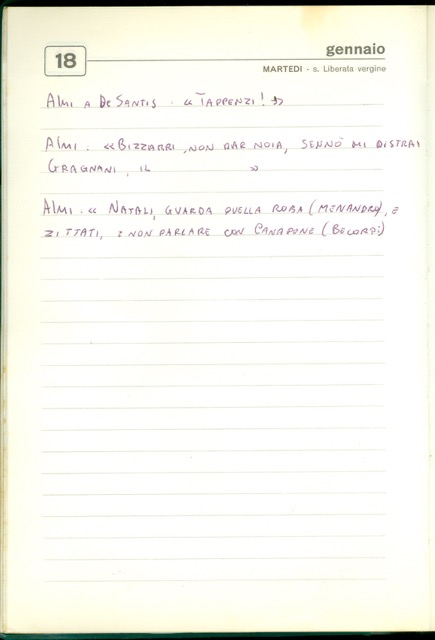 gennaio
18
MARTEDI - s. Liberata vergine
Almi a De Santis. «Tappenzi!»
Almi. «Bizzarri, non dar noia, sennò mi distrai
Gragnani, il »
Almi. « Natali, guarda quella roba (Menandro), e
zittati, e non parlare con Canapone (Becordi)